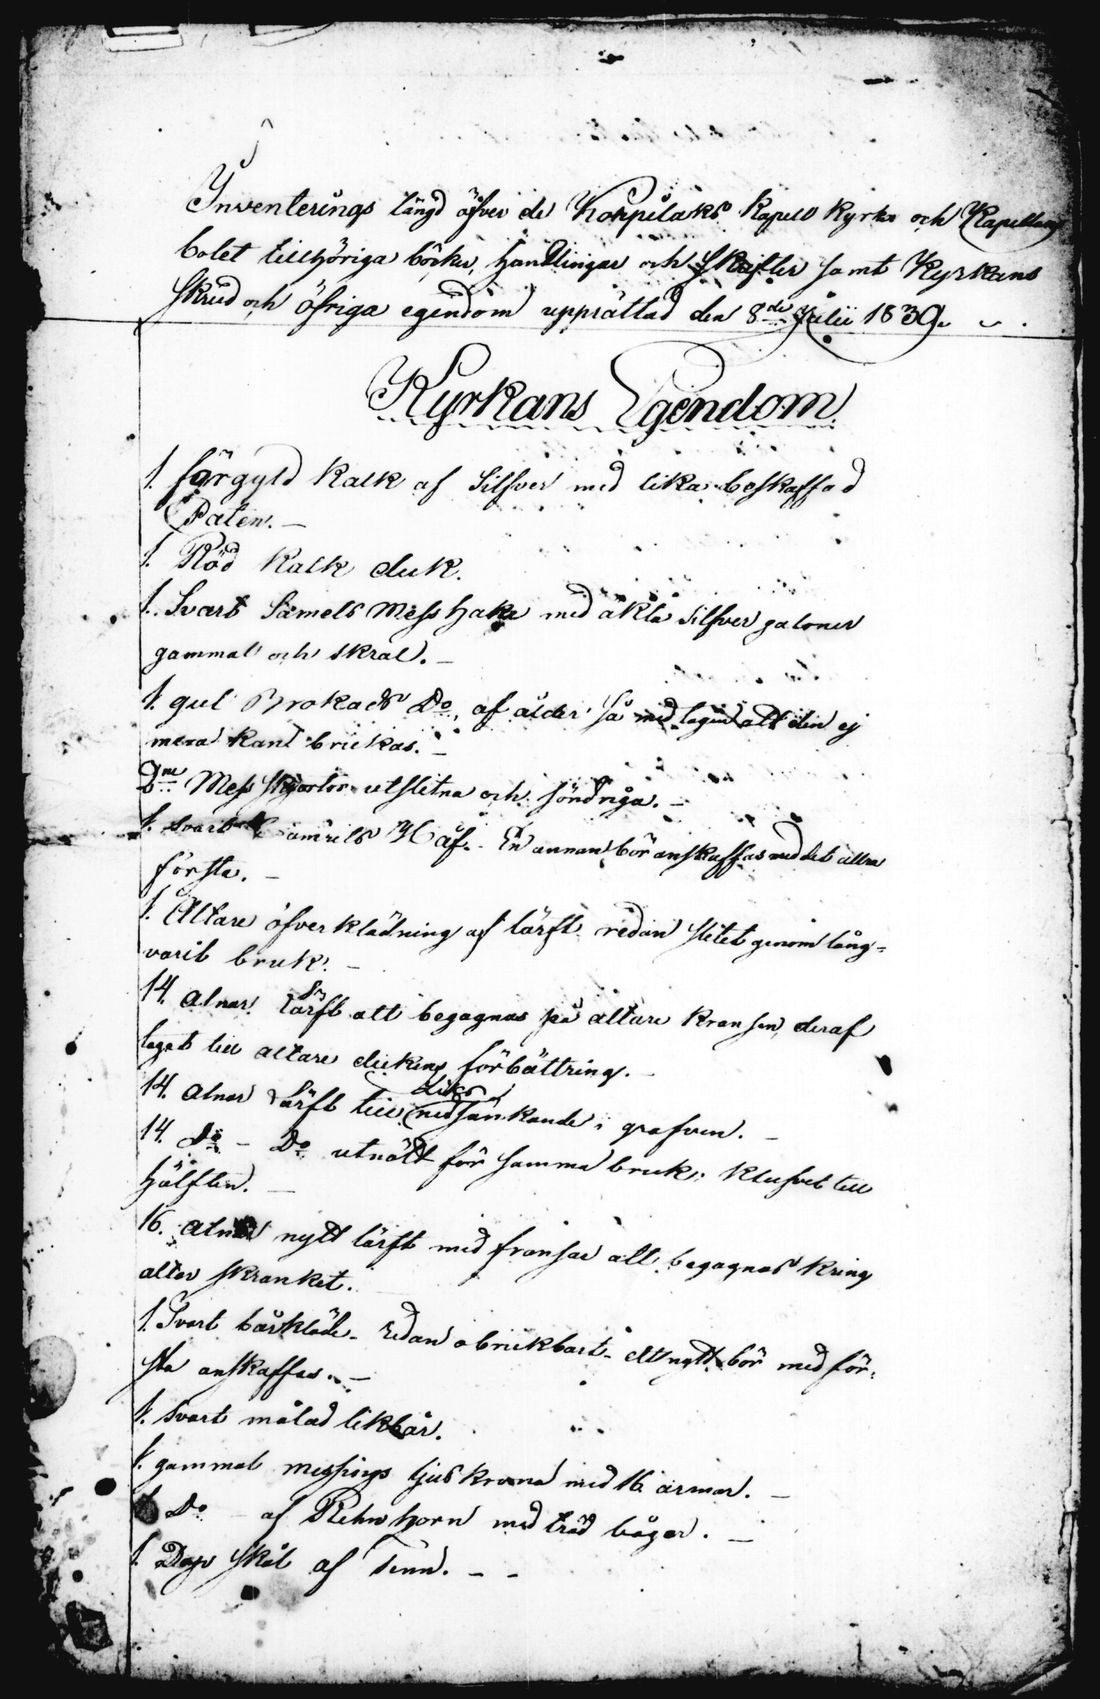 Inventerings längd öfver de Korpilaks Kapell Kyrka och Kapellans
bolet tillhöriga böcker, handlingar och skrifter samt Kyrkans
skrud och öfriga egendom upprättad den 8de Julii 1839.
Kyrkans Egendom
1. förgyld Kalk af Silfver med lika beskaffad
Paten. -
1. Röd Kalk duk.
1. Svart Samets Mess Hake med äkta silfver galoner
gammal och skral. -
1. gul Brokads Do, af ålder så medtagen att den ej
mera kand brukas. -
2ne Mess skjortor utslitna och söndriga. -
1. svart Samets Håf. - En annan bör anskaffas med det allra
första. -
1. Altare öfverklädning af lärft redan slitet genom lång-
varit bruk. -
14. alnar lärft att begagnas på altare kransen, deraf
tagit till altare dukens förbättring. -
14. alnar lärft till Liks nedsänkande i grafven. -
14. Do - Do utnött för samma bruk; klufvet till
hälften. -
16. alnar nytt lärft med fransar att begagnas kring
altar skranket. -
1. Svart bårkläde - redan obrukbart - ett nytt bör med för-
sta anskaffas. -
1. svart målad likbår.
1. gammal messings ljuskrona med 16 armar. -
1 Do - af Rehn horn med träd bågar. -
1. Dop skål af Tenn. - -